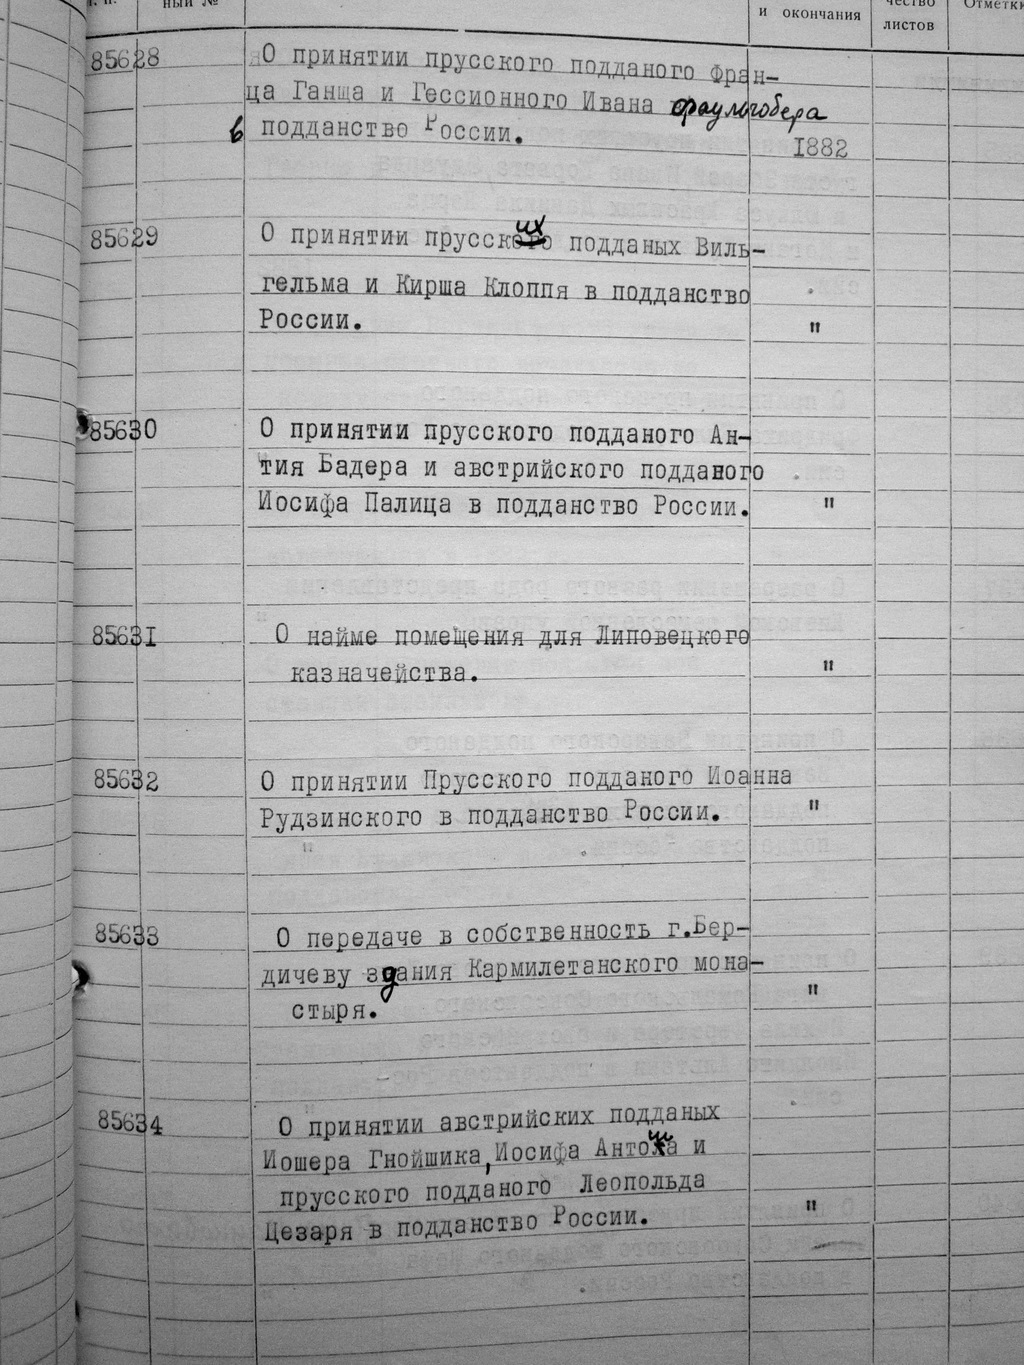 ный №
и окончания
чество
листов
Отметки
85628
О принятии прусского подданого Фран-
ца Ганща и Гессионного Ивана Фраульгобера
в подданство России.
1882
85629
О принятии прусских подданых Виль-
гельма и Кирша Клоппя в подданство
России.
"
85630
О принятии прусского подданого Ан-
тия Бадера и австрийского подданого
Иосифа Палица в подданство России.
"
85631
О найме помещения для Липовецкого
казначейства.
"
85632
О принятии Прусского подданого Иоанна
Рудзинского в подданство России.
"
85633
О передаче в собственность г.Бер-
дичеву здания Кармилетанского мона-
стыря.
"
85634
О принятии австрийских подданых
Иошера Гнойшика, Иосифа Антоша и
прусского подданого Леопольда
Цезаря в подданство России.
"